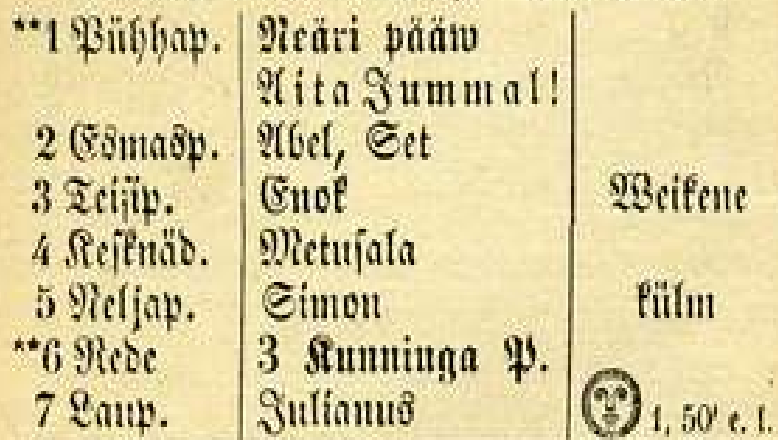 **1 Pühhap. Neäri pääw
Aita Jummal!
2 Esmasp. Abel, Set
3 Teisip. Enok Weikene
4 Kesknäd. Metusala
5 Neljap. Simon külm
**6 Rede 3 Kunninga P.
7 Laup. Julianus 1, 50' e. l.